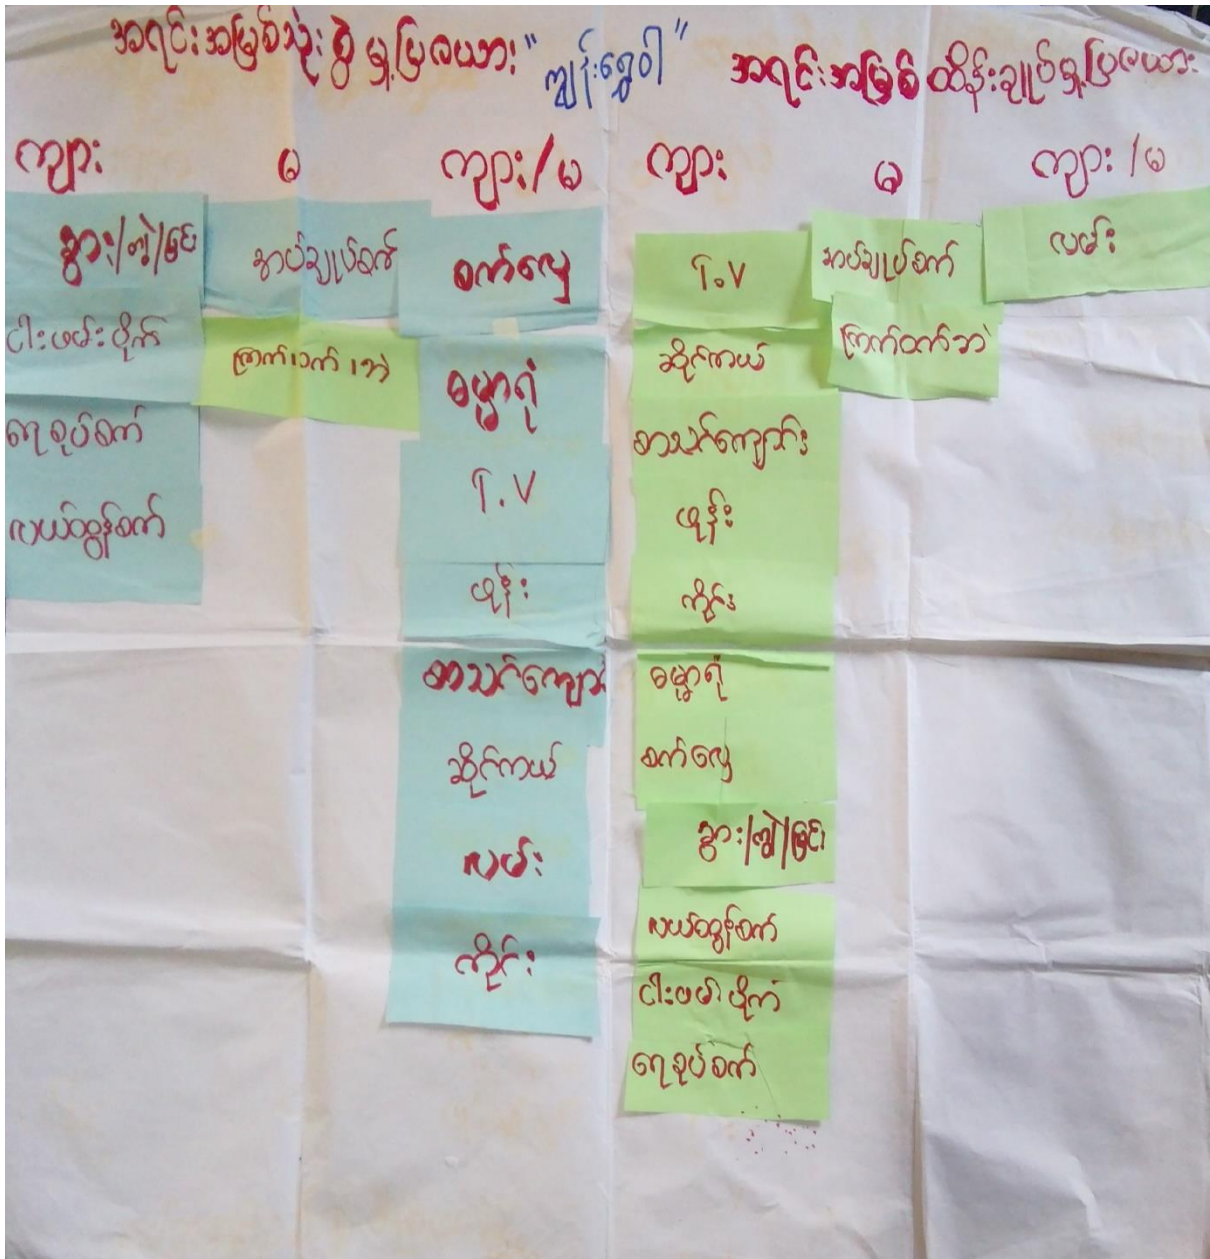 အရင်းအမြစ်သုံးစွဲမှုပြဇယား "ကျွန်းရွှေဝါ" အရင်းအမြစ်ထိန်းချုပ်မှုပြဇယား
ကျား မ ကျား/မ ကျား မ ကျား/မ
နွား/ကျွဲ/မြင်း
ငါးဖမ်းပိုက်
ရေစုပ်စက်
လယ်ထွန်စက်
အပ်ချုပ်စက်
ကြက်၊ဝက်၊ဘဲ
စက်လှေ
ဓမ္မာရုံ
T.V
ဖုန်း
စာသင်ကျောင်း
ဆိုင်ကယ်
လမ်း
ကိုင်း
T.V
ဆိုင်ကယ်
စာသင်ကျောင်း
ဖုန်း
ကိုင်း
ဓမ္မာရုံ
စက်လှေ
နွား/ကျွဲ/မြင်း
လယ်ထွန်စက်
ငါးဖမ်းပိုက်
ရေစုပ်စက်
အပ်ချုပ်စက်
ကြက်ဝက်ဘဲ
လမ်း